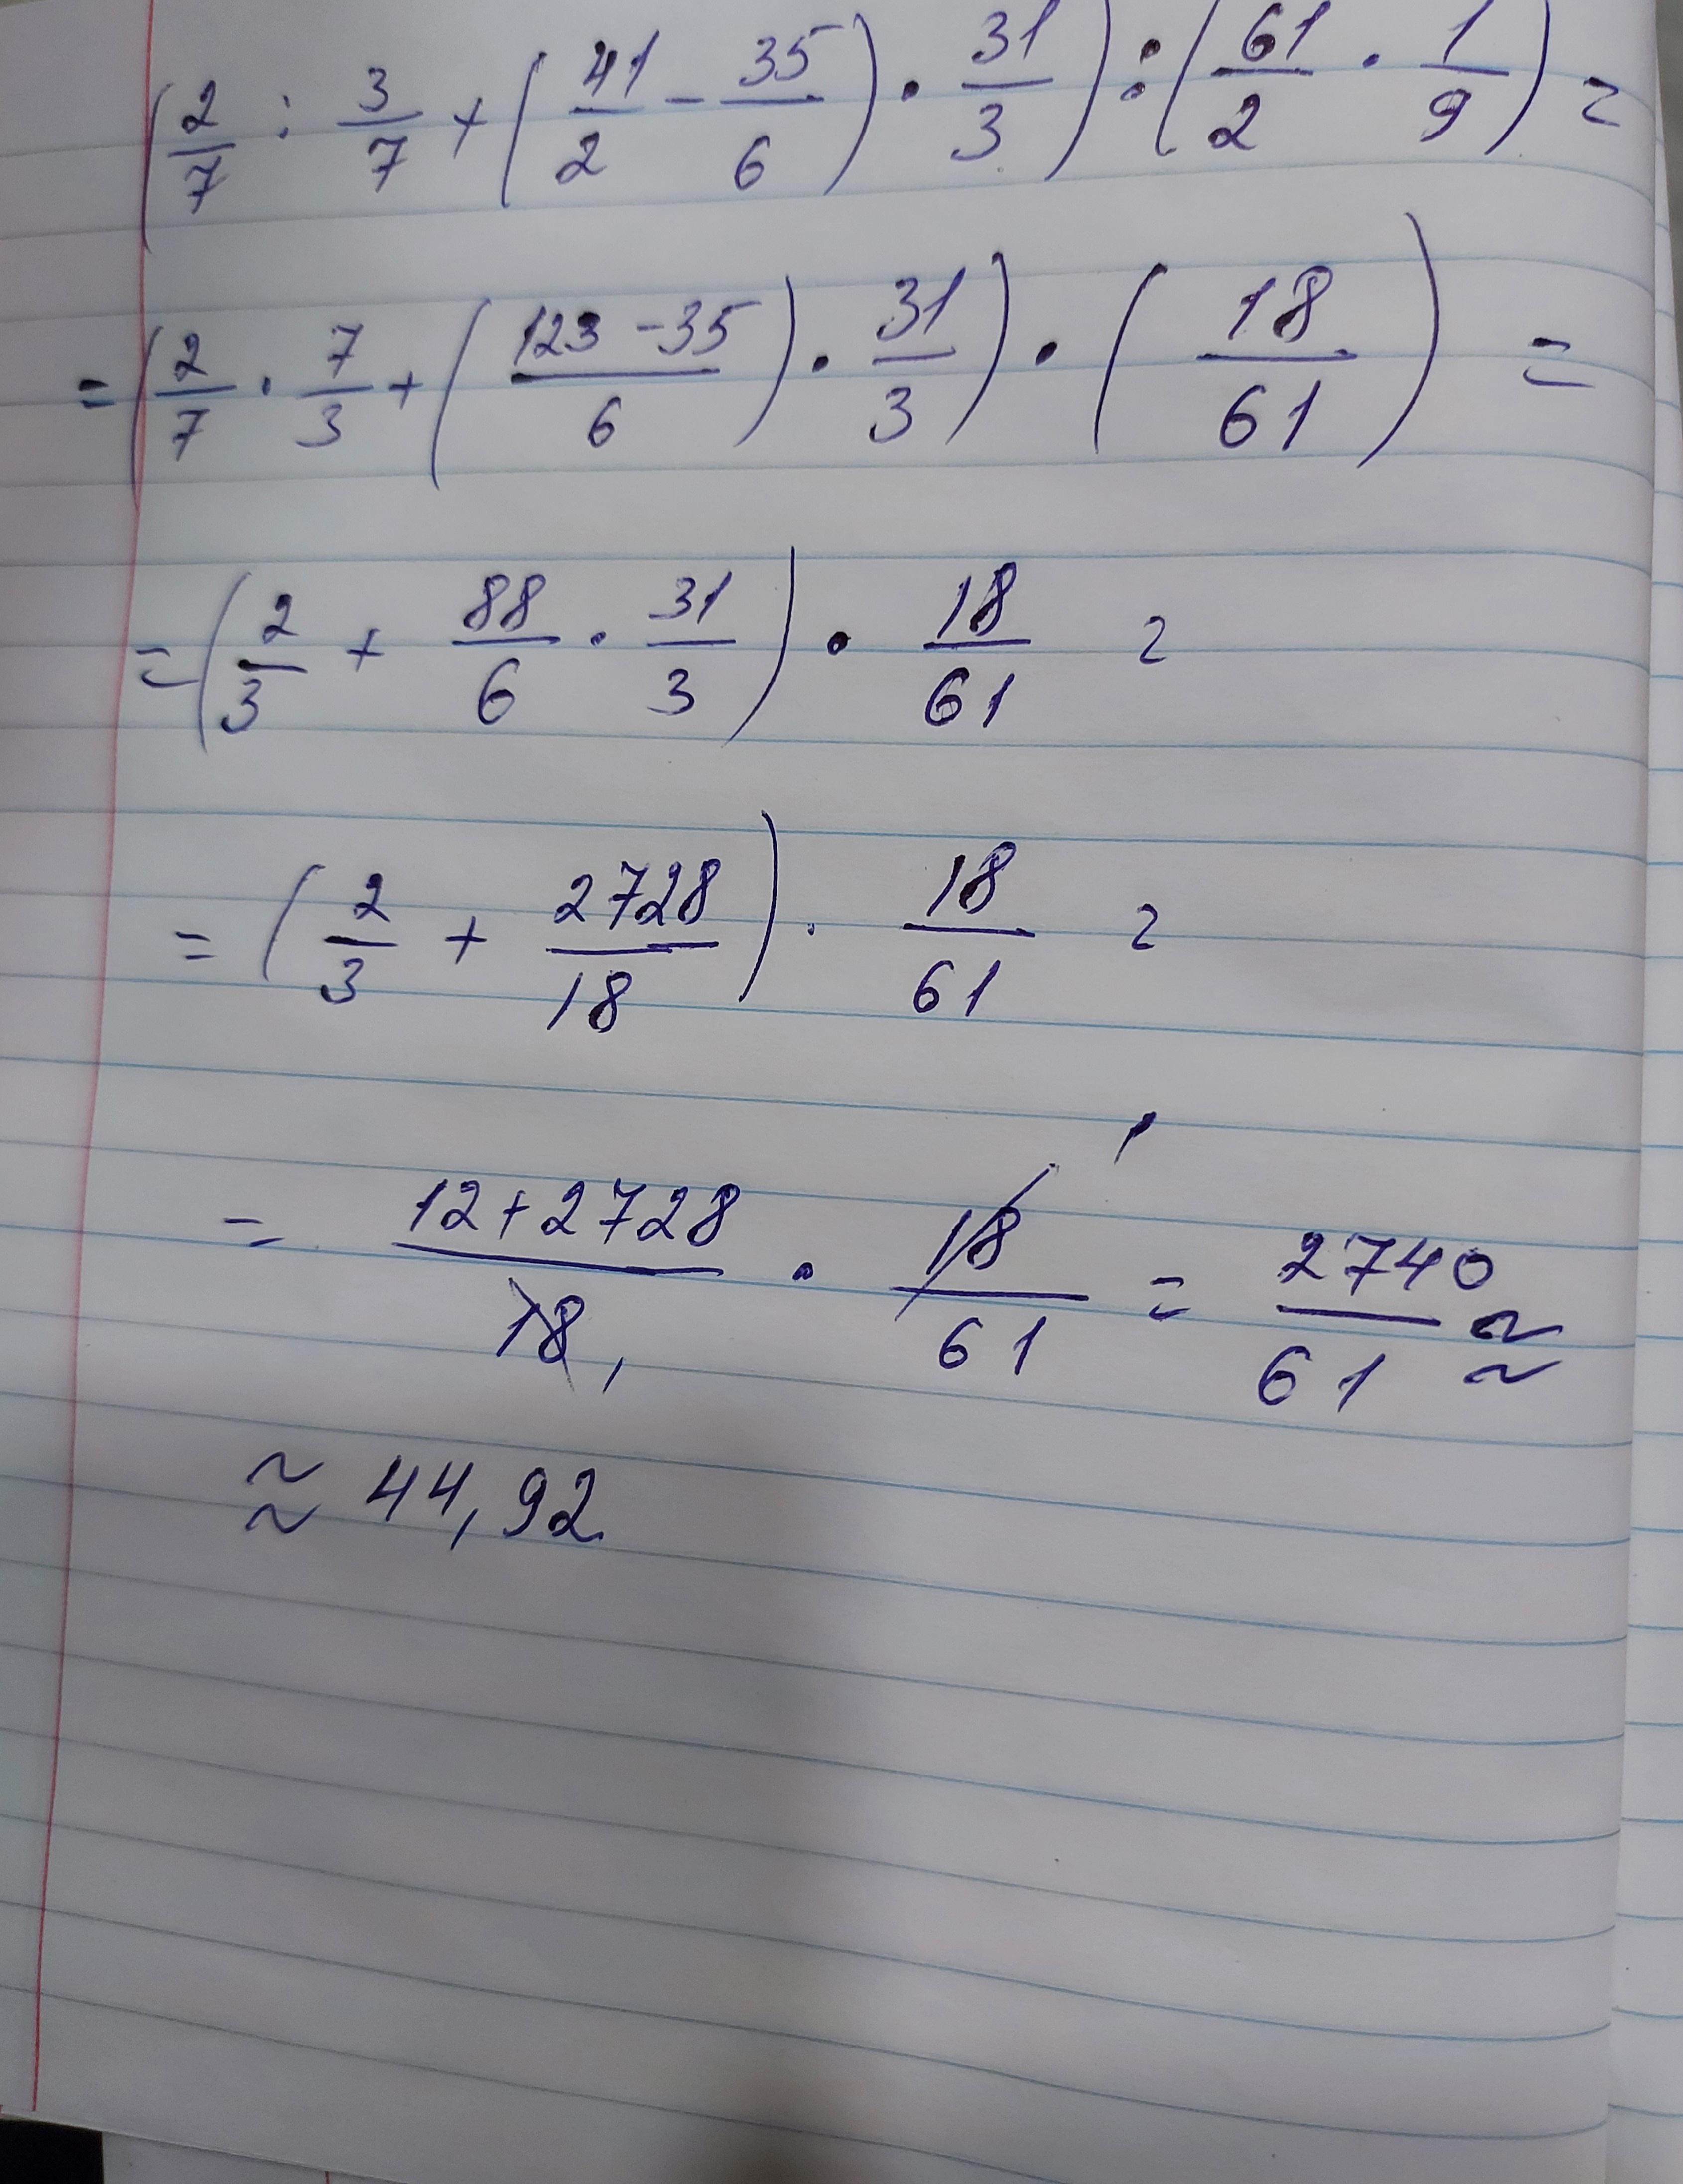 (2/7 : 3/7 + (41/2 - 35/6) · 31/3) : (61/2 · 1/9) =
= (2/7 · 7/3 + ((123 - 35)/6) · 31/3) · (18/61) =
= (2/3 + 88/6 · 31/3) · 18/61 =
= (2/3 + 2728/18) · 18/61 =
= (12 + 2728)/18 1 · 18/61 1 = 2740/61 ≈
≈ 44,92